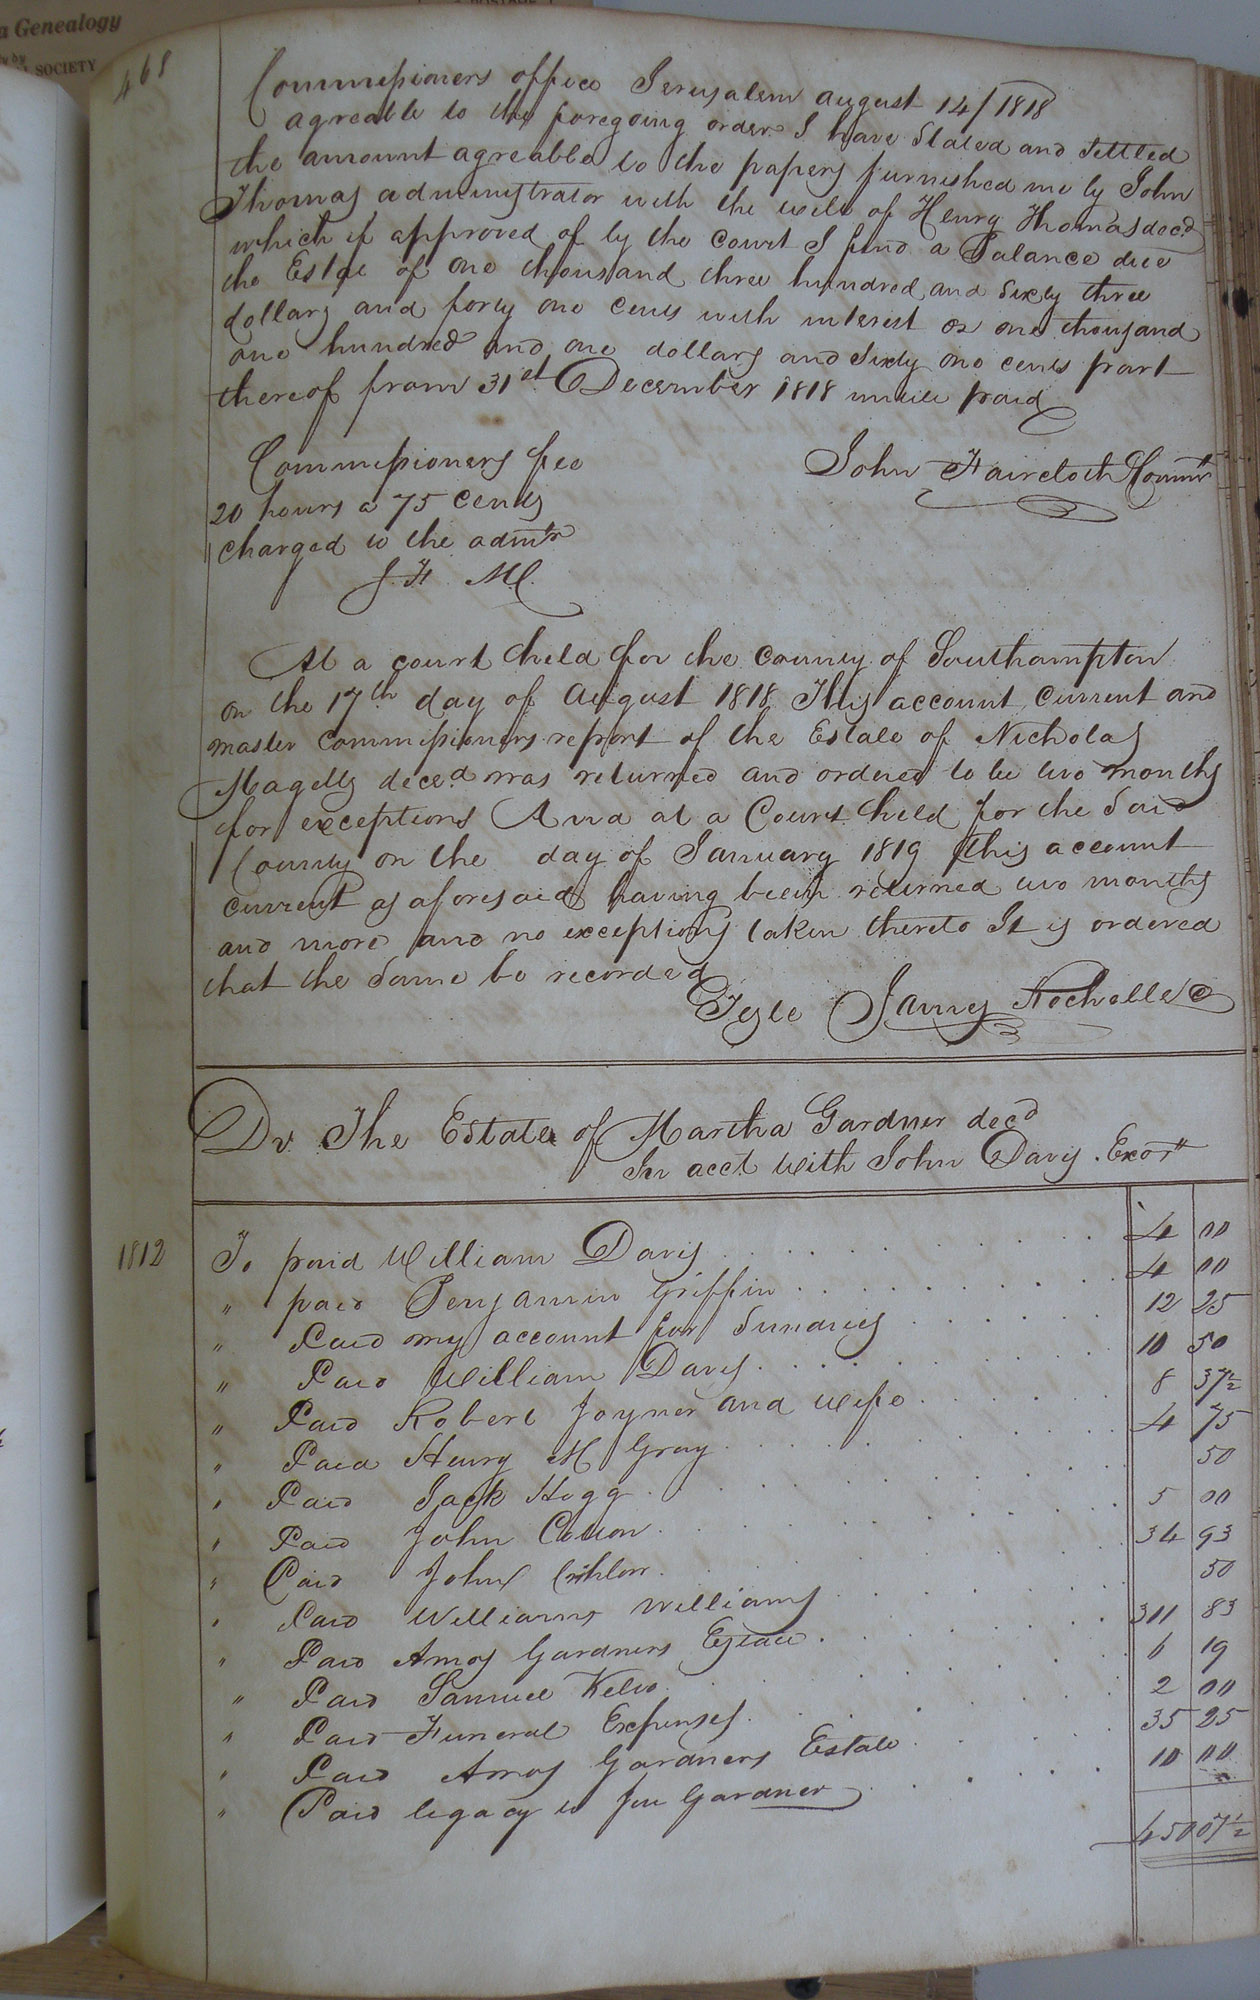 a Genealogy
SOCIETY
468
Commissioners office Jerusalem august 14/1818
agreable to the foregoing order I have Stated and Settled
the amount agreable to the papers furnished me by John
Thomas administrator with the will of Henry Thomas decd
which if approved of by the court I find a Balance due
the Estate of one thousand three hundred and Sixty three
dollars and forty one cents with interest on one thousand
one hundred and one dollars and Sixty one cents part
thereof from 31st December 1818 untill paid
Commissioners fee
John Faircloth Commr
20 hours a 75 Cents
charged to the admtr
J. F. M.C.
At a court held for the county of Southampton
on the 17th day of August 1818 This account Current and
master commissioners report of the Estate of Nicholas
Magetts decd was returned and ordered to be two months
for exceptions And at a Court held for the Said
County on the day of January 1819 this account
current as aforesaid having been returned two months
and more and no exceptions taken thereto It is ordered
that the Same be recorded
Teste James Rochelle C
Dr The Estate of Martha Gardner decd
In acct with John Davis Exor
1812 To paid William Davis 4 00
" paid Benjamin Griffin 4 00
" Paid my account for Sundries 12 25
" Paid William Davis 10 50
" Paid Robert Joyner and wife 8 37½
" Paid Henry M Gray 4 75
" Paid Jack Hogg 50
" Paid John Couon 5 00
" Paid John 34 93
" Paid Williams Williams 50
" Paid Amos Gardners Estate 311 83
" Paid Samuel Kelso 6 19
" Paid Funeral Expenses 2 00
" Paid Amos Gardners Estate 35 25
" Paid legacy to Jno Gardner 10 00
450 07½